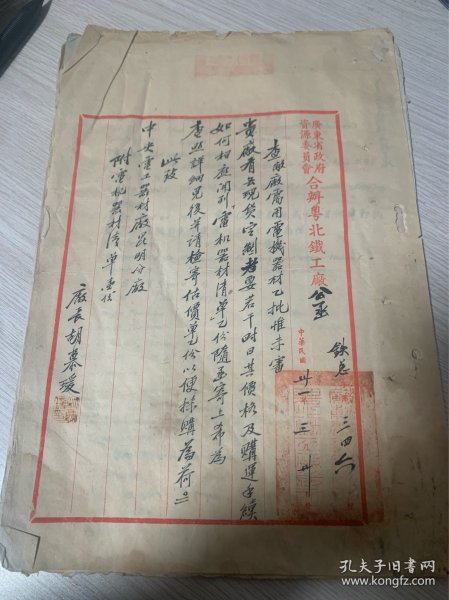 廣東省政府
資源委員會
合辦粵北鐵工廠公函
鉄總
三四六
中華民國卅一 三 卅
查敝廠需用電機器材乙批惟未審
貴廠有無現貨定制者要若干時日其價格及購運手續
如何相應開列電機器材清單乙份隨函寄上希為
查照詳細見復并請檢寄估價單乙份以便採購為荷
此致
中央電工器材廠昆明分廠
附電機器材清單壹份
廠長胡慕瑗
孔夫子旧书网
www.kongfz.com